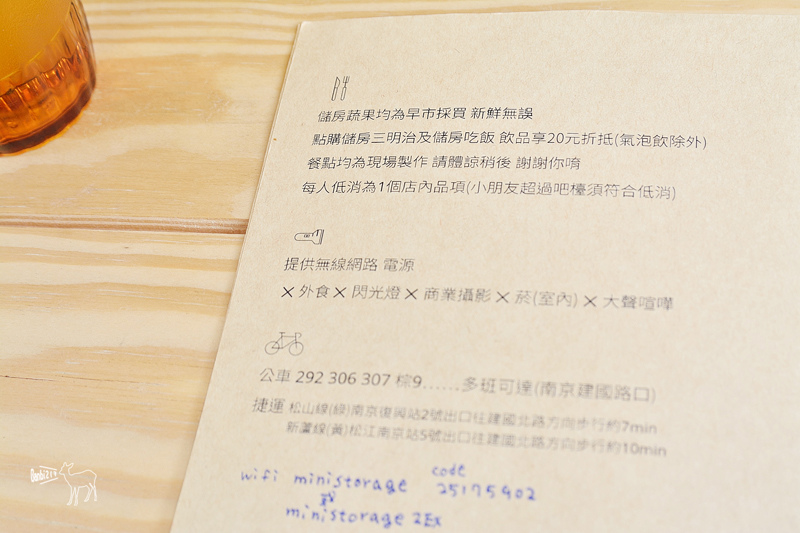 儲房蔬果均為早市採買 新鮮無誤
點購儲房三明治及儲房吃飯 飲品享20元折抵(氣泡飲除外)
餐點均為現場製作 請體諒稍後 謝謝你唷
每人低消為1個店內品項(小朋友超過吧檯須符合低消)
提供無線網路 電源
✕外食✕閃光燈✕商業攝影✕菸(室內)✕大聲喧嘩
公車 292 306 307 棕9……多班可達(南京建國路口)
捷運 松山線(綠)南京復興站2號出口往建國北路方向步行約7min
新蘆線(黃)松江南京站5號出口往建國北路方向步行約10min
wifi ministorage code 25175902
或
ministorage 2Ex